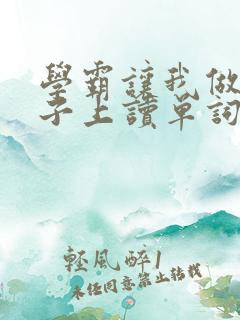 學霸讓我做
子上讀單詞
輕風醉1
未任同意禁止轉載